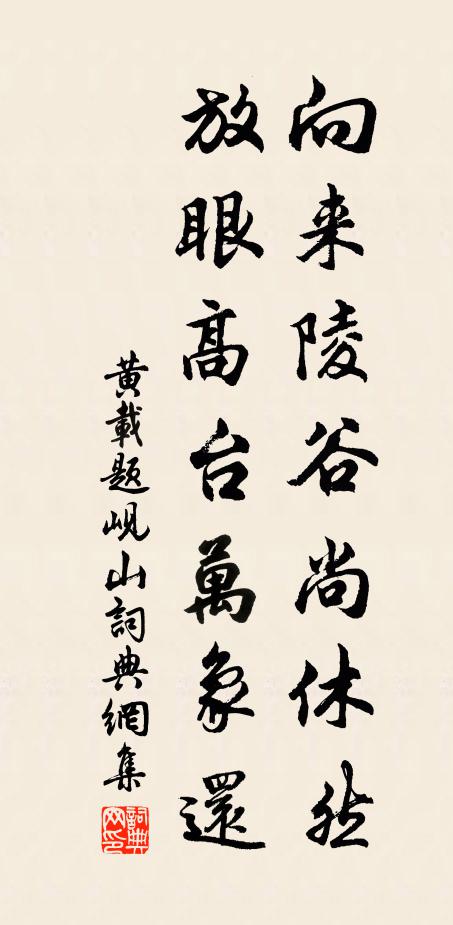 向来陵谷尚休然
放眼高台萬象還
黄載題峴山詞典網集
詞典网印